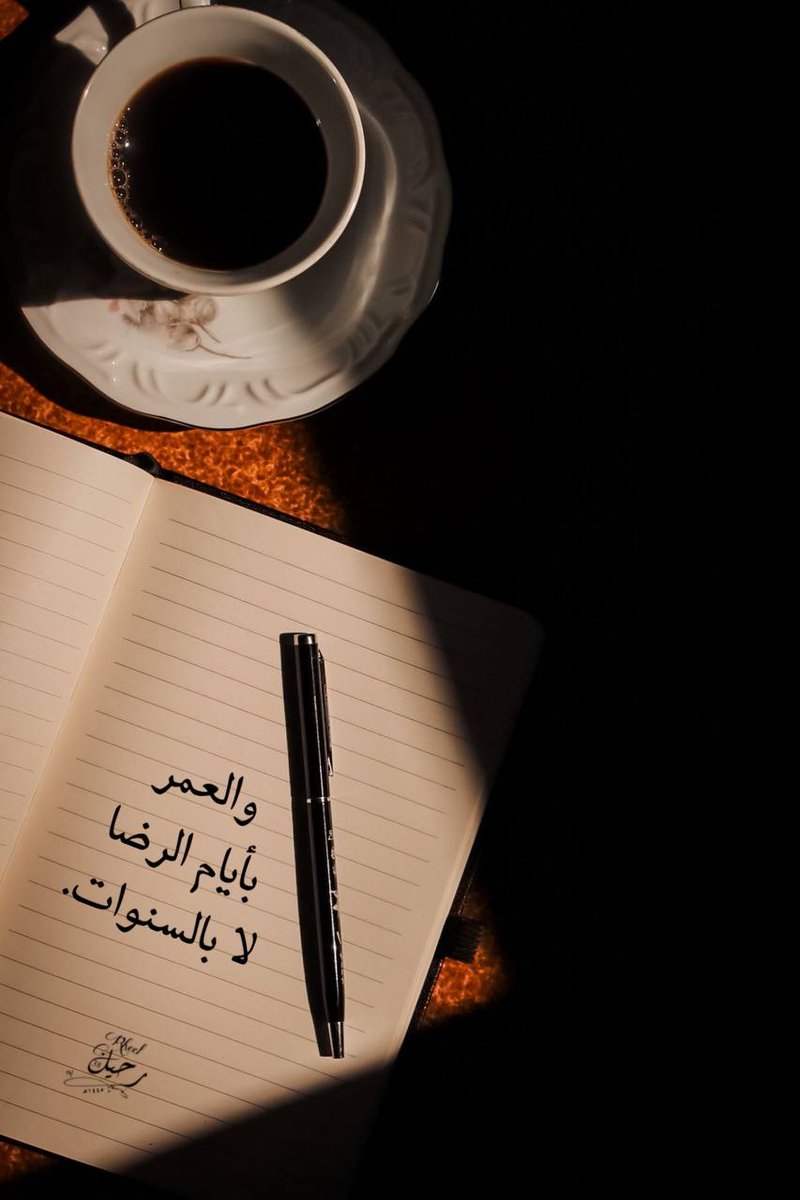 والعمر
بأيام الرضا
لا بالسنوات.
Rheel
رحيل
١٤٤٥هـ